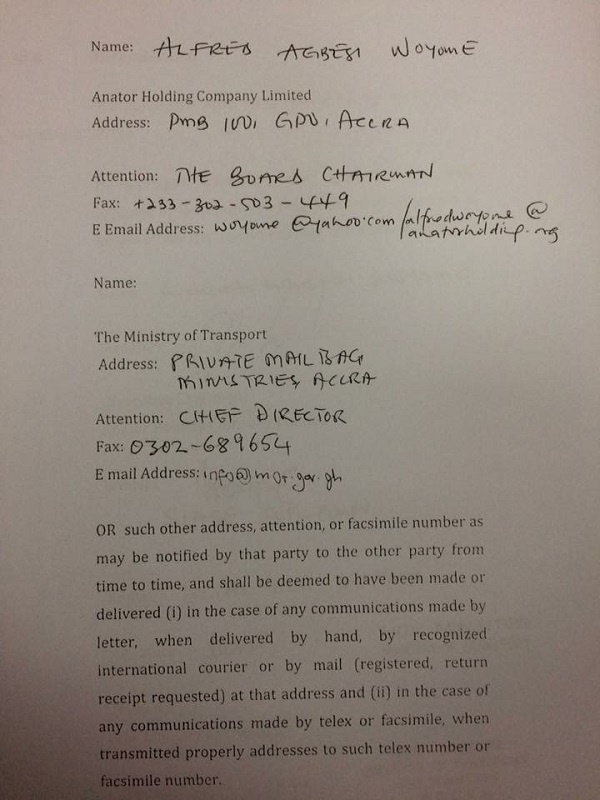 Name: ALFRED AGBESI WOYOME
Anator Holding Company Limited
Address: PMB 100, GPO, ACCRA
Attention: THE BOARD CHAIRMAN
Fax: +233-302-503-449
E Email Address: woyome@yahoo.com/alfredwoyome@
anatorholding.org
Name:
The Ministry of Transport
Address: PRIVATE MAIL BAG
MINISTRIES, ACCRA
Attention: CHIEF DIRECTOR
Fax: 0302-689654
E mail Address: info@mot.gov.gh
OR such other address, attention, or facsimile number as
may be notified by that party to the other party from
time to time, and shall be deemed to have been made or
delivered (i) in the case of any communications made by
letter, when delivered by hand, by recognized
international courier or by mail (registered, return
receipt requested) at that address and (ii) in the case of
any communications made by telex or facsimile, when
transmitted properly addresses to such telex number or
facsimile number.